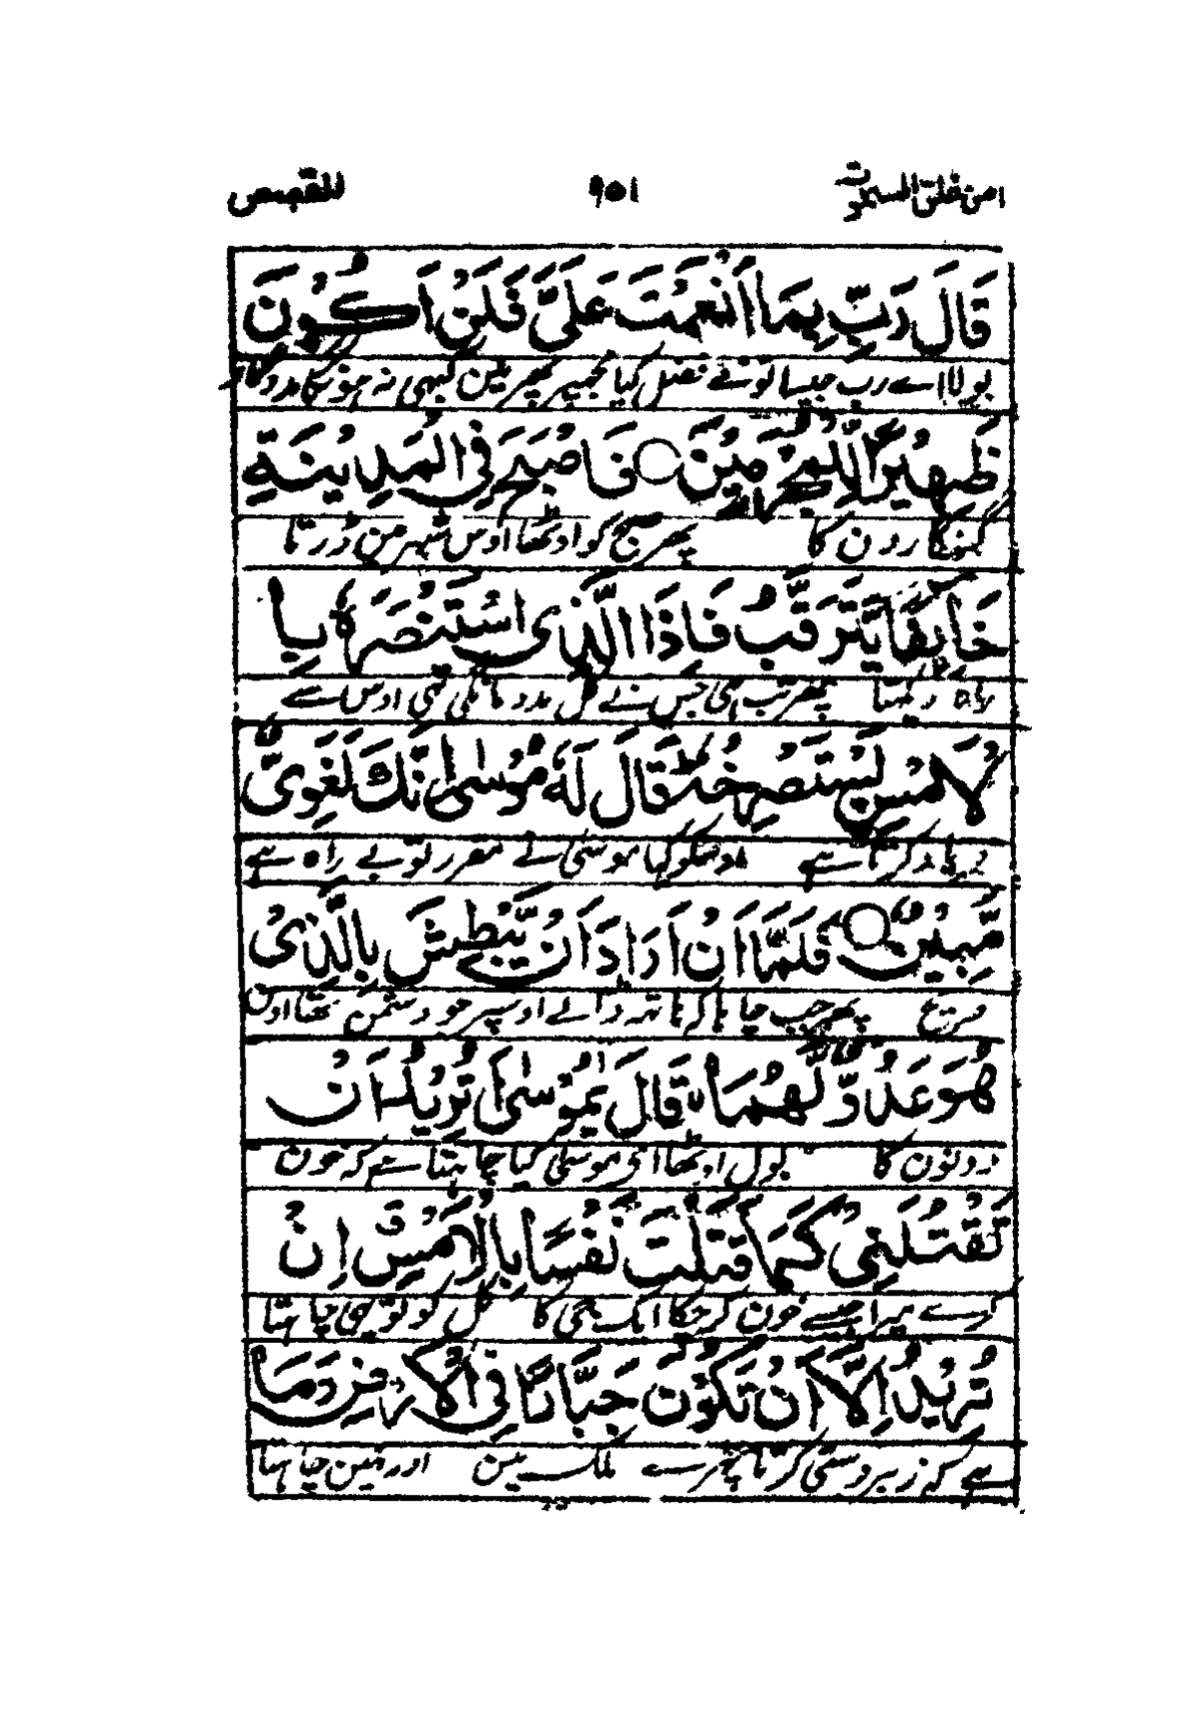 امن خلق السموت ٩٥١ القصص
قَالَ رَبِّ بِمَا أَنْعَمْتَ عَلَىَّ فَلَنْ اَكُوْنَ
بولا اے رب جیسا تونے فضل کیا مجھپر پھر مین کبھی نہ ہونگا مددگار
ظَهِيْرًا لِّلْمُجْرِمِيْنَ ○ فَاَصْبَحَ فِي الْمَدِيْنَةِ
گنہگارون کا پھر صبح کو اوٹھا اوس شہر مین ڈرتا
خَآئِفًا يَّتَرَقَّبُ فَاِذَا الَّذِى اسْتَنْصَرَهٗ بِا
راہ دیکھتا پھر تب ہی جس نے کل مدد مانگی تھی اوس سے
لْاَمْسِ يَسْتَصْرِخُهٗ ط قَالَ لَهٗ مُوْسٰى اِنَّكَ لَغَوِىٌّ
فریاد کرتا ہے اوسکو کہا موسٰی نے مقرر تو بے راہ ہے
مُّبِيْنٌ ○ فَلَمَّا اَنْ اَرَادَ اَنْ يَّبْطِشَ بِالَّذِىْ
صریح پھر جب چاہا کہ ہاتھ ڈالے اوسپر جو دشمن تھا اون
هُوَ عَدُوٌّ لَّهُمَا قَالَ يٰمُوْسٰى اَتُرِيْدُ اَنْ
دونون کا بول اوٹھا ای موسٰی کیا چاہتا ہے کہ خون
تَقْتُلَنِىْ كَمَا قَتَلْتَ نَفْسًا بِالْاَمْسِ اِنْ
کرے میرا جیسے خون کرچکا ایک جی کا کل کو تو یہی چاہتا
تُرِيْدُ اِلَّا اَنْ تَكُوْنَ جَبَّارًا فِى الْاَرْضِ وَمَا
ہے کہ زبردستی کرتا پھرے ملک مین اور نہین چاہتا